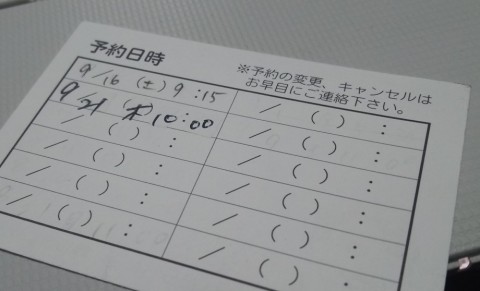 予約日時
※予約の変更、キャンセルは
お早目にご連絡下さい。
9/16 (土) 9:15
9/21 (木) 10:00
/ ( ) :
/ ( ) :
/ ( ) :
/ ( ) :
/ ( ) :
/ ( ) :
/ ( ) :
/ ( ) :
/ ( ) :